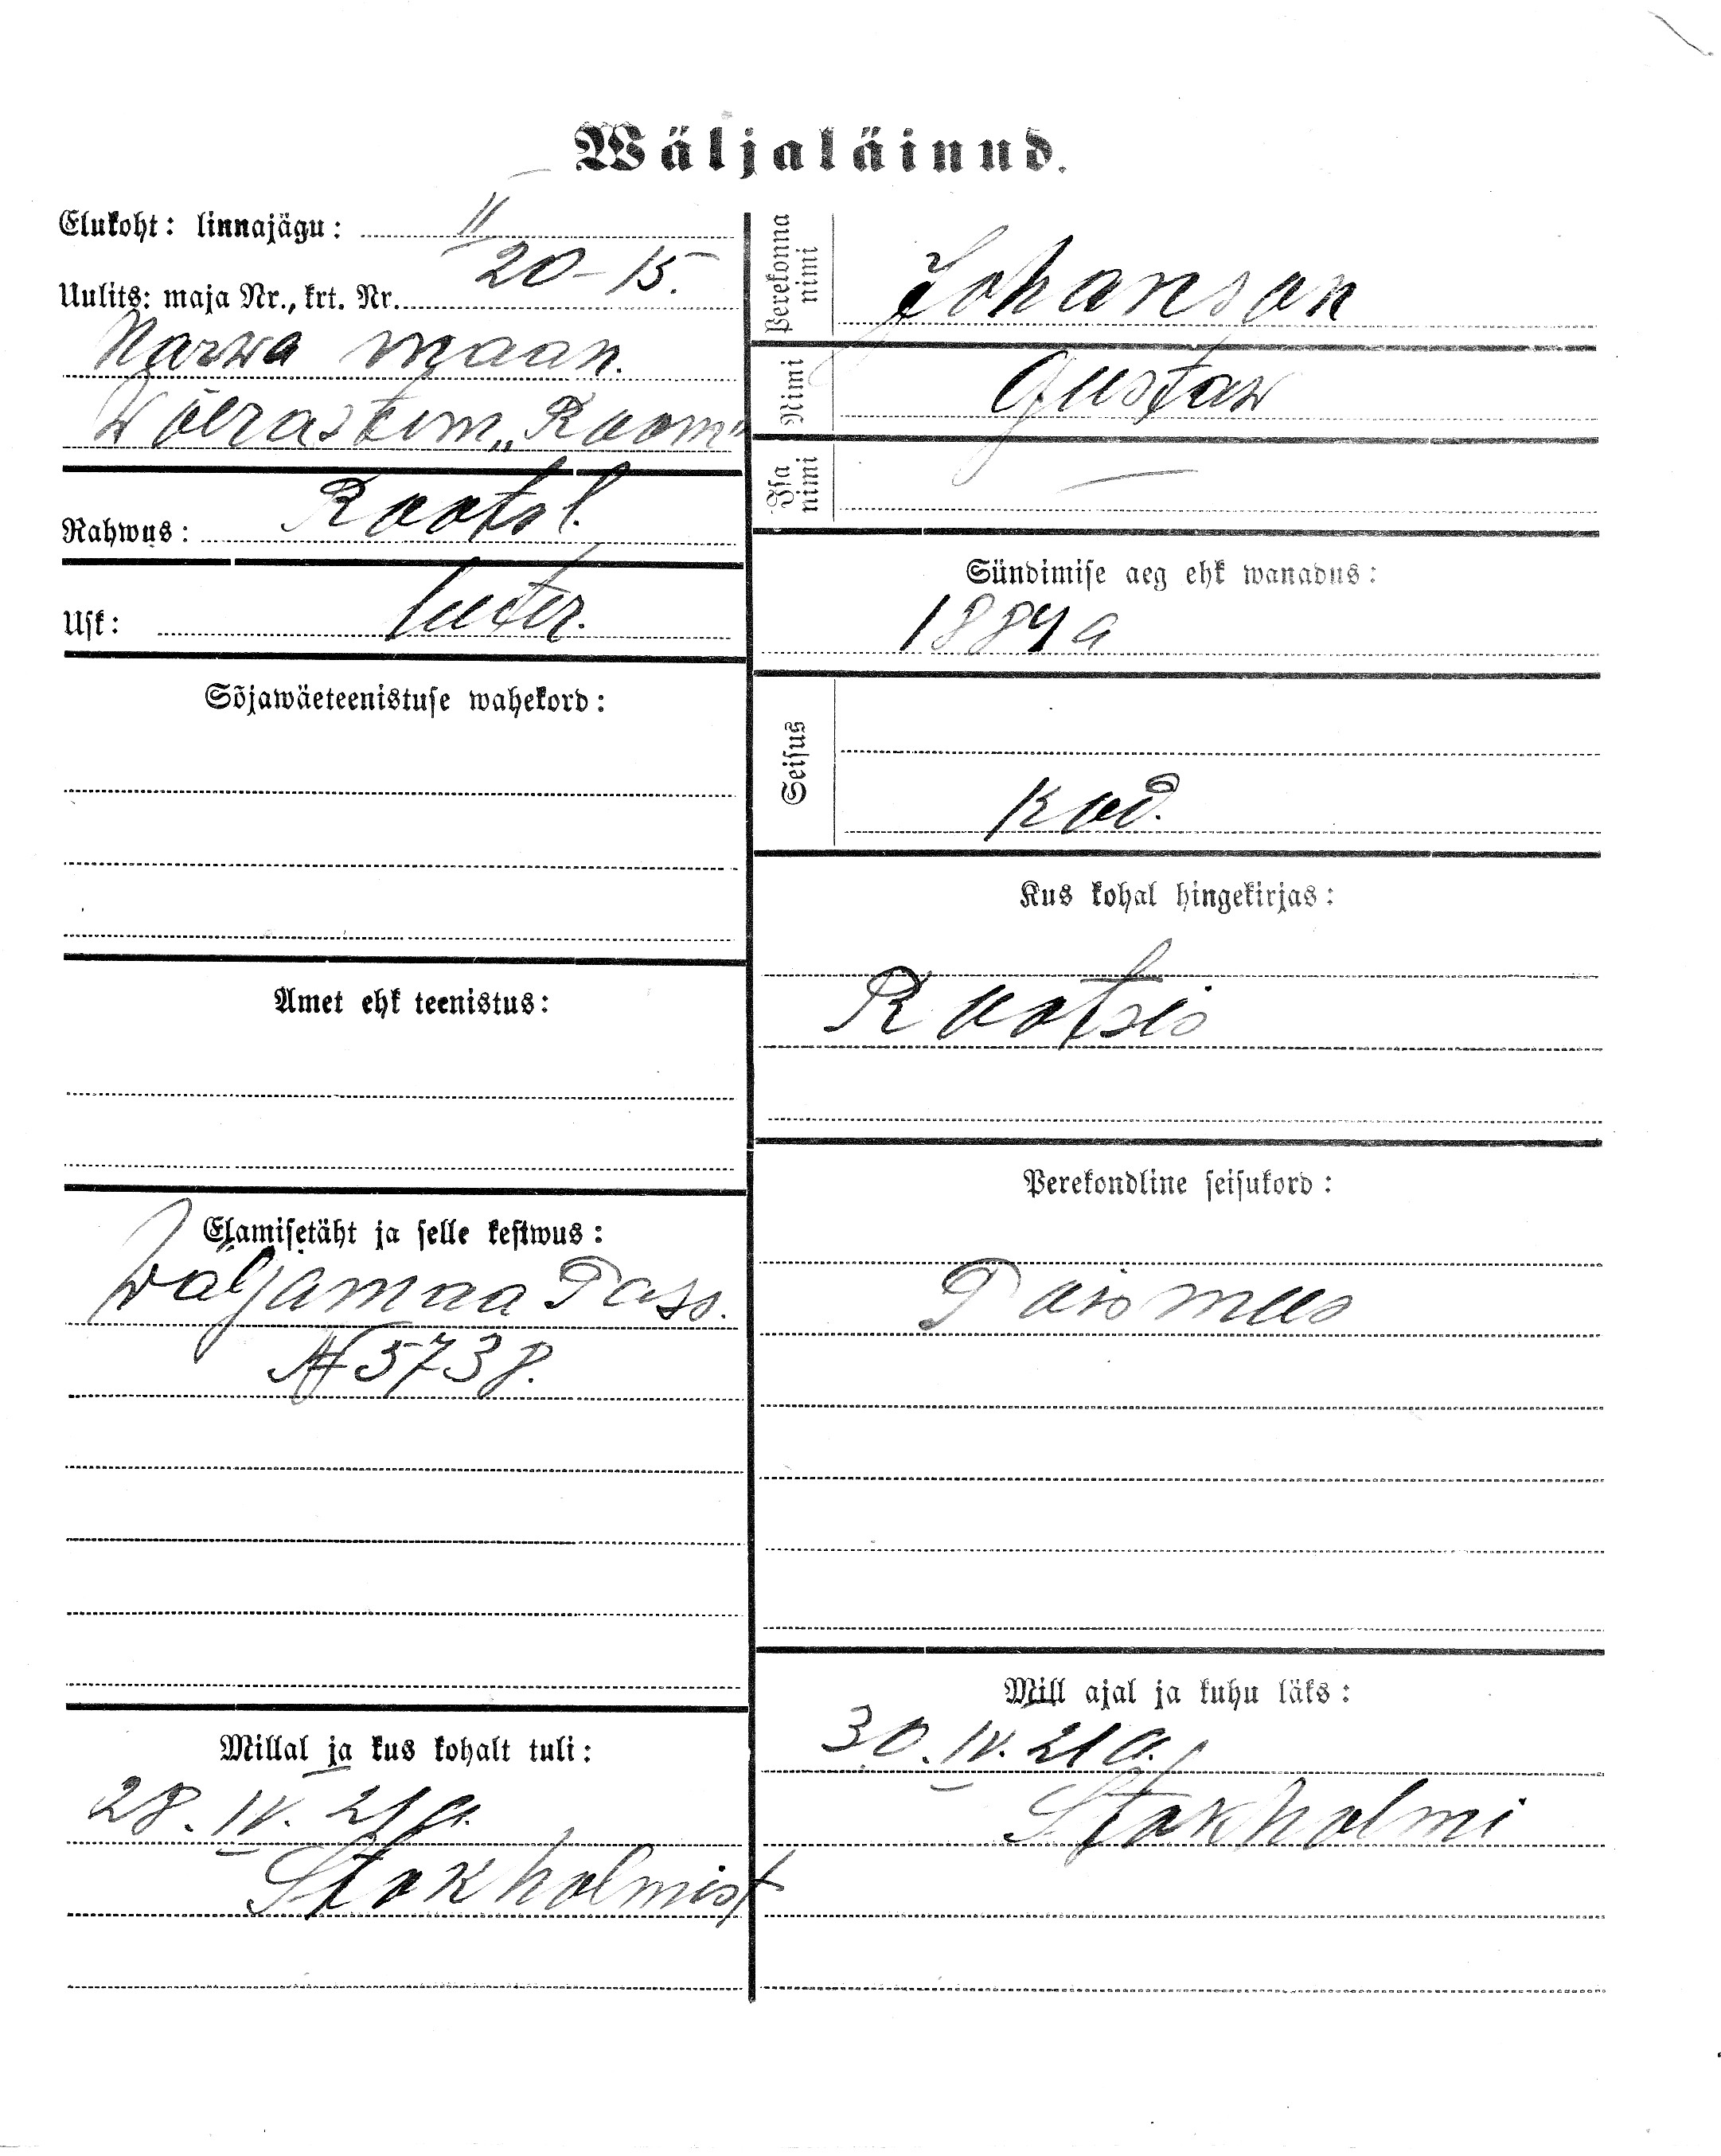 Wäljaläinud.
Elukoht: linnajägu: II
Uulits: maja Nr., krt. Nr. 20-15.
Narwa maan.
Wõerastem „Room"
Rahwus: Rootsl.
Usk: luter.
Sõjawäeteenistuse wahekord:
Amet ehk teenistus:
Elamisetäht ja selle kestwus:
Wäljamaa Pass.
№ 5738.
Millal ja kus kohalt tuli:
28. IV. 21 a.
Stokholmist
Perekonna nimi Johanson
Nimi Gustaw
Isa nimi —
Sündimise aeg ehk wanadus:
1884 a
Seisus
kod.
Kus kohal hingekirjas:
Rootsis
Perekondline seisukord:
Poismees
Mill ajal ja kuhu läks:
30. IV. 21 a.
Stokholmi